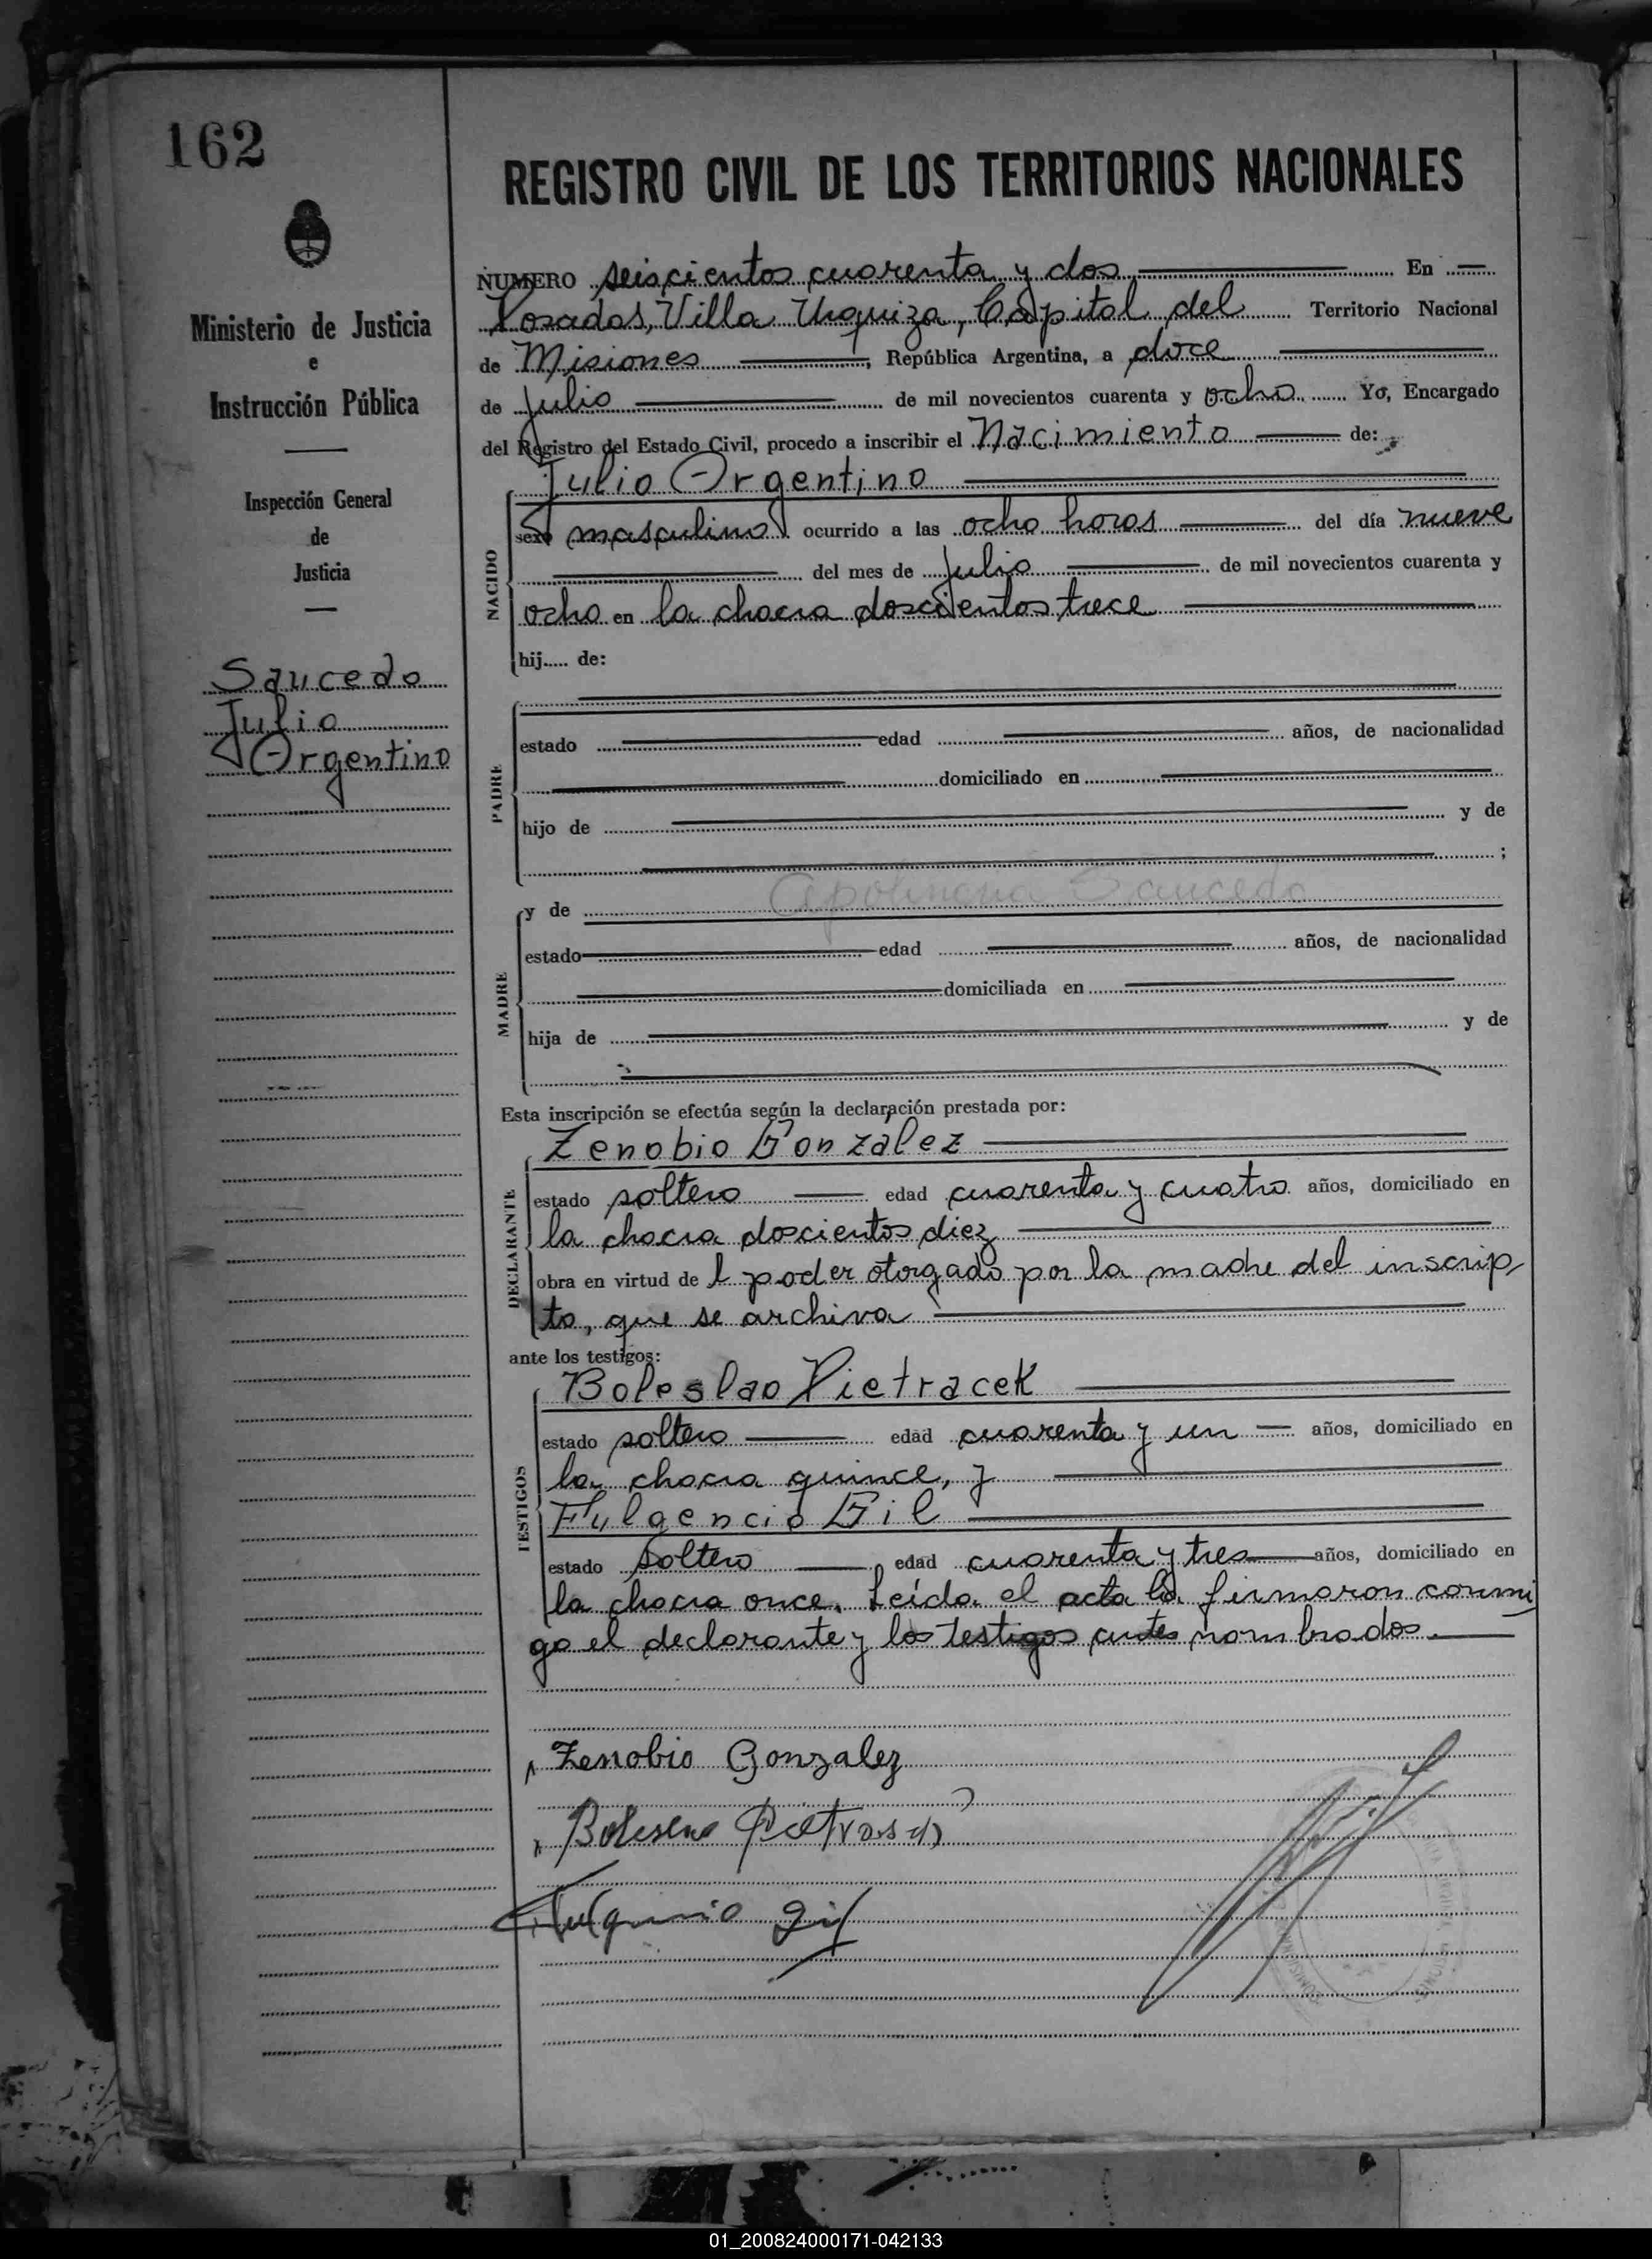 162
REGISTRO CIVIL DE LOS TERRITORIOS NACIONALES
Ministerio de Justicia
e
Instrucción Pública
Inspección General
de
Justicia
Saucedo
Julio
Argentino
NUMERO seiscientos cuarenta y dos En
Posadas, Villa Urquiza, Capital del Territorio Nacional
de Misiones, República Argentina, a doce
de Julio de mil novecientos cuarenta y ocho Yo, Encargado
del Registro del Estado Civil, procedo a inscribir el Nacimiento de:
Julio Argentino
NACIDO
sexo masculino ocurrido a las ocho horas del día nueve
del mes de Julio de mil novecientos cuarenta y
ocho en la chacra doscientos trece
hij..... de:
PADRE
estado edad años, de nacionalidad
domiciliado en
hijo de y de
;
MADRE
y de Apolinaria Saucedo
estado edad años, de nacionalidad
domiciliada en
hija de y de
Esta inscripción se efectúa según la declaración prestada por:
Zenobio González
DECLARANTE
estado soltero edad cuarenta y cuatro años, domiciliado en
la chacra doscientos diez
obra en virtud de l poder otorgado por la madre del inscrip
to, que se archiva
ante los testigos:
Boleslao Pietracek
TESTIGOS
estado soltero edad cuarenta y un años, domiciliado en
la chacra quince, y
Fulgencio Gil
estado soltero edad cuarenta y tres años, domiciliado en
la chacra once. Leída el acta la firmaron conmi
go el declarante y los testigos antes nombrados.
Zenobio Gonzalez
Fulgencio Gil
01_200824000171-042133